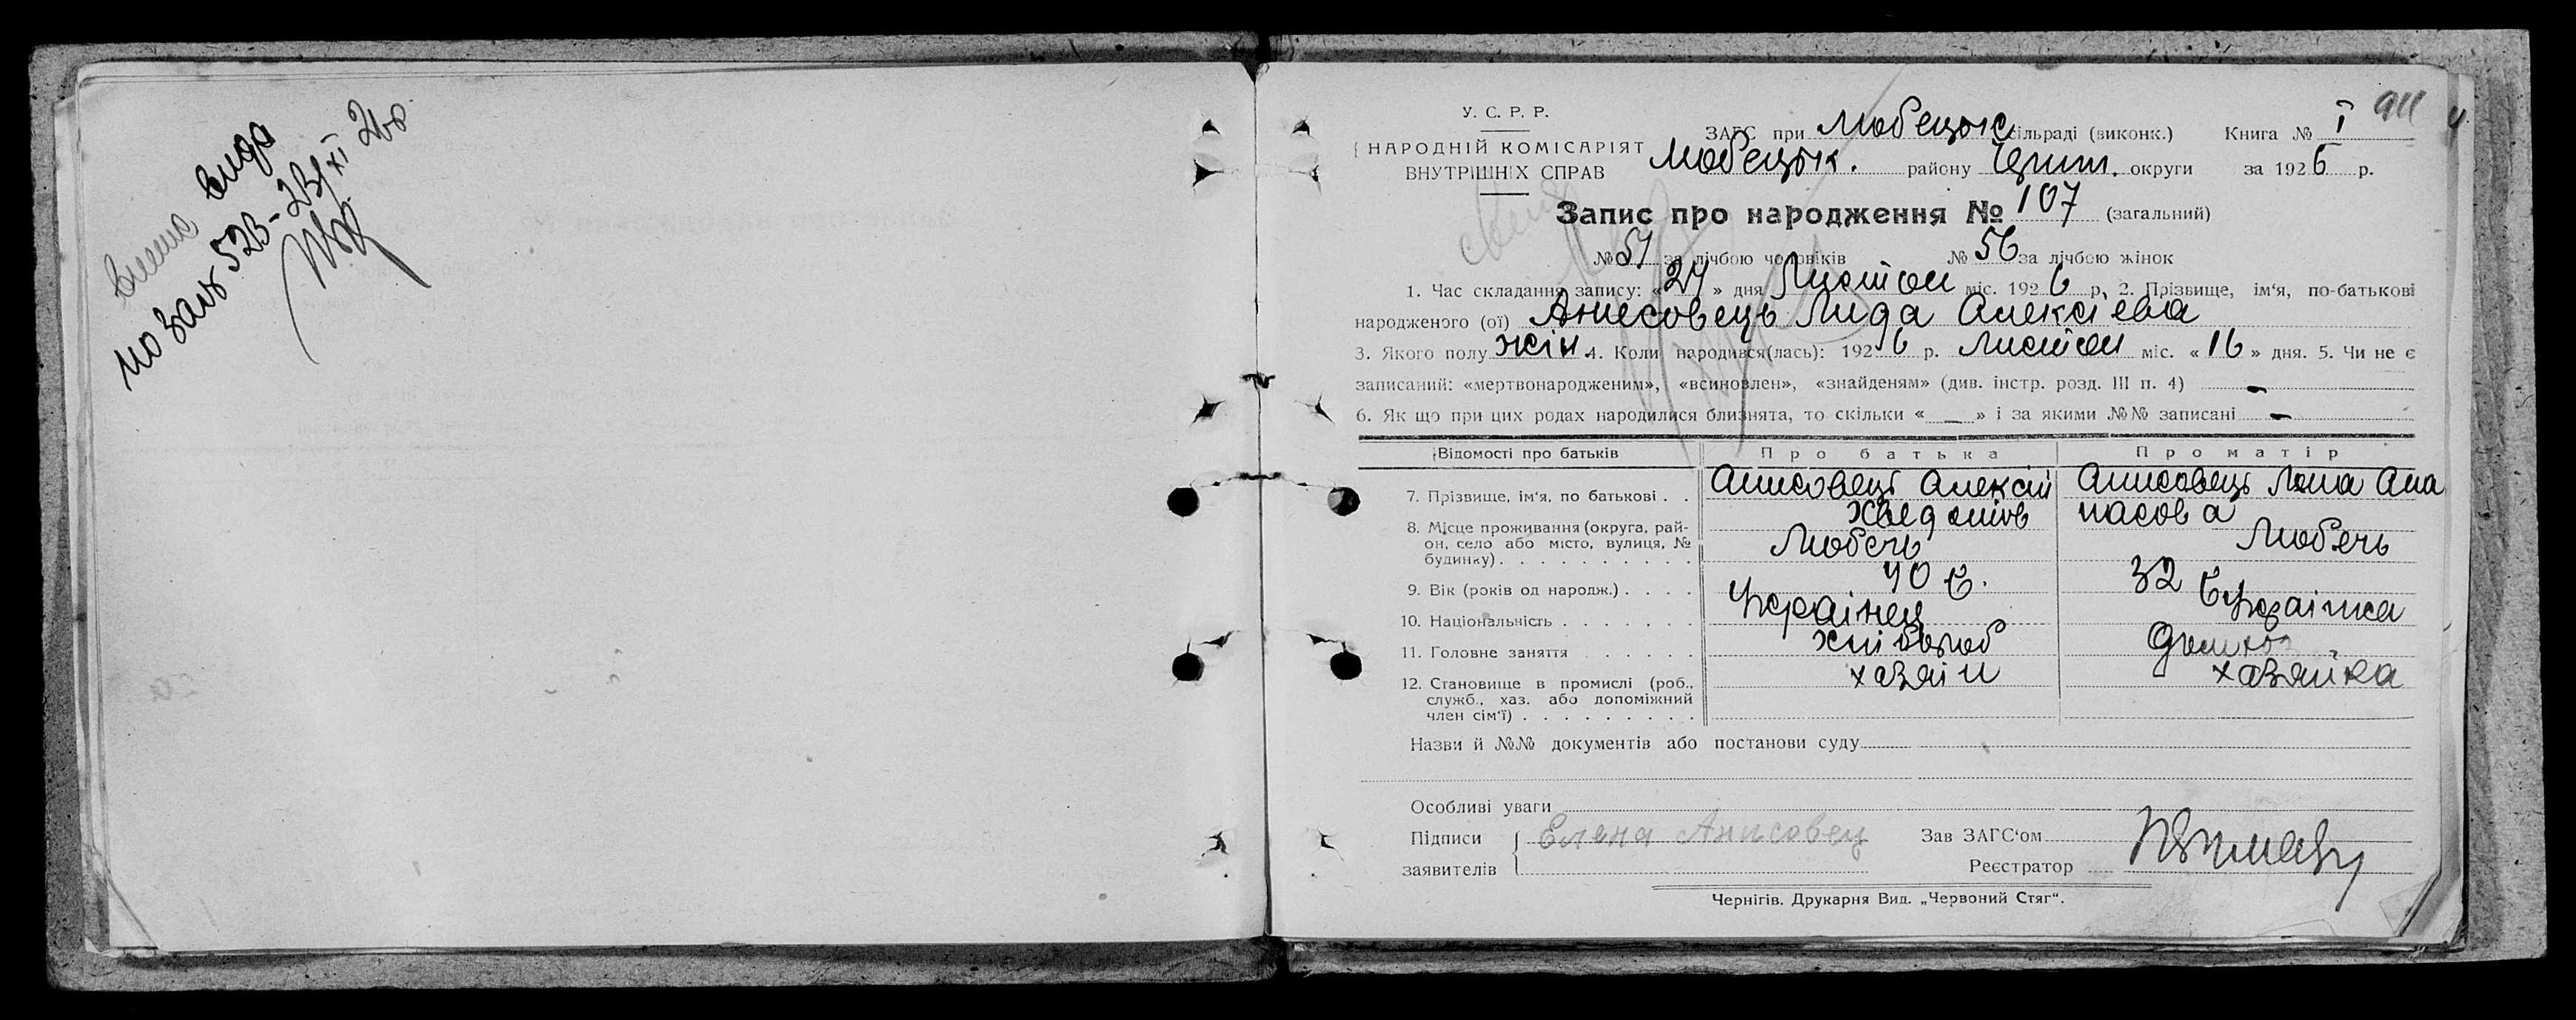 по заяв 523 - 23/XI 26р
У. С. Р. Р.
НАРОДНІЙ КОМІСАРІЯТ
ВНУТРІШНІХ СПРАВ
ЗАГС при Любецьк сільраді (виконк.) Книга № I
Любецьк. району Черн. округи за 1926 р.
Запис про народження № 107 (загальний)
№ 51 за лічбою чоловіків № 56 за лічбою жінок
1. Час складання запису: « » дня Листоп міс. 1926 р. 2. Прізвище, ім'я, по-батькові
народженого (ої) Анисовець Лида Алексієва
3. Якого полу жін. 4. Коли народився(лась): 1926 р. листоп міс. «16» дня. 5. Чи не є
записаний: «мертвонародженим», «всиновлен», «знайденям» (див. інстр. розд. III п. 4) -
6. Як що при цих родах народилися близнята, то скільки « - » і за якими №№ записані -
Відомості про батьків Про батька Про матір
7. Прізвище, ім'я, по батькові . . Анисовець Алексій Анисовець Апа
пасова
8. Місце проживання (округа, рай-
он, село або місто, вулиця, №
будинку) . . . . . . . . . . Любечь Любечь
9. Вік (років од народж.) . . . . 40 32
10. Національність . . . . . . . Українец Українка
11. Головне заняття . . . . . хлібороб
12. Становище в промислі (роб.,
служб., хаз. або допоміжний
член сім'ї) . . . . . . . . . хазяін хазяйка
Назви й №№ документів або постанови суду
Особливі уваги
Підписи Елена Анисовец Зав ЗАГС'ом
заявителів Реєстратор
Чернігів. Друкарня Вид. „Червоний Стяг".